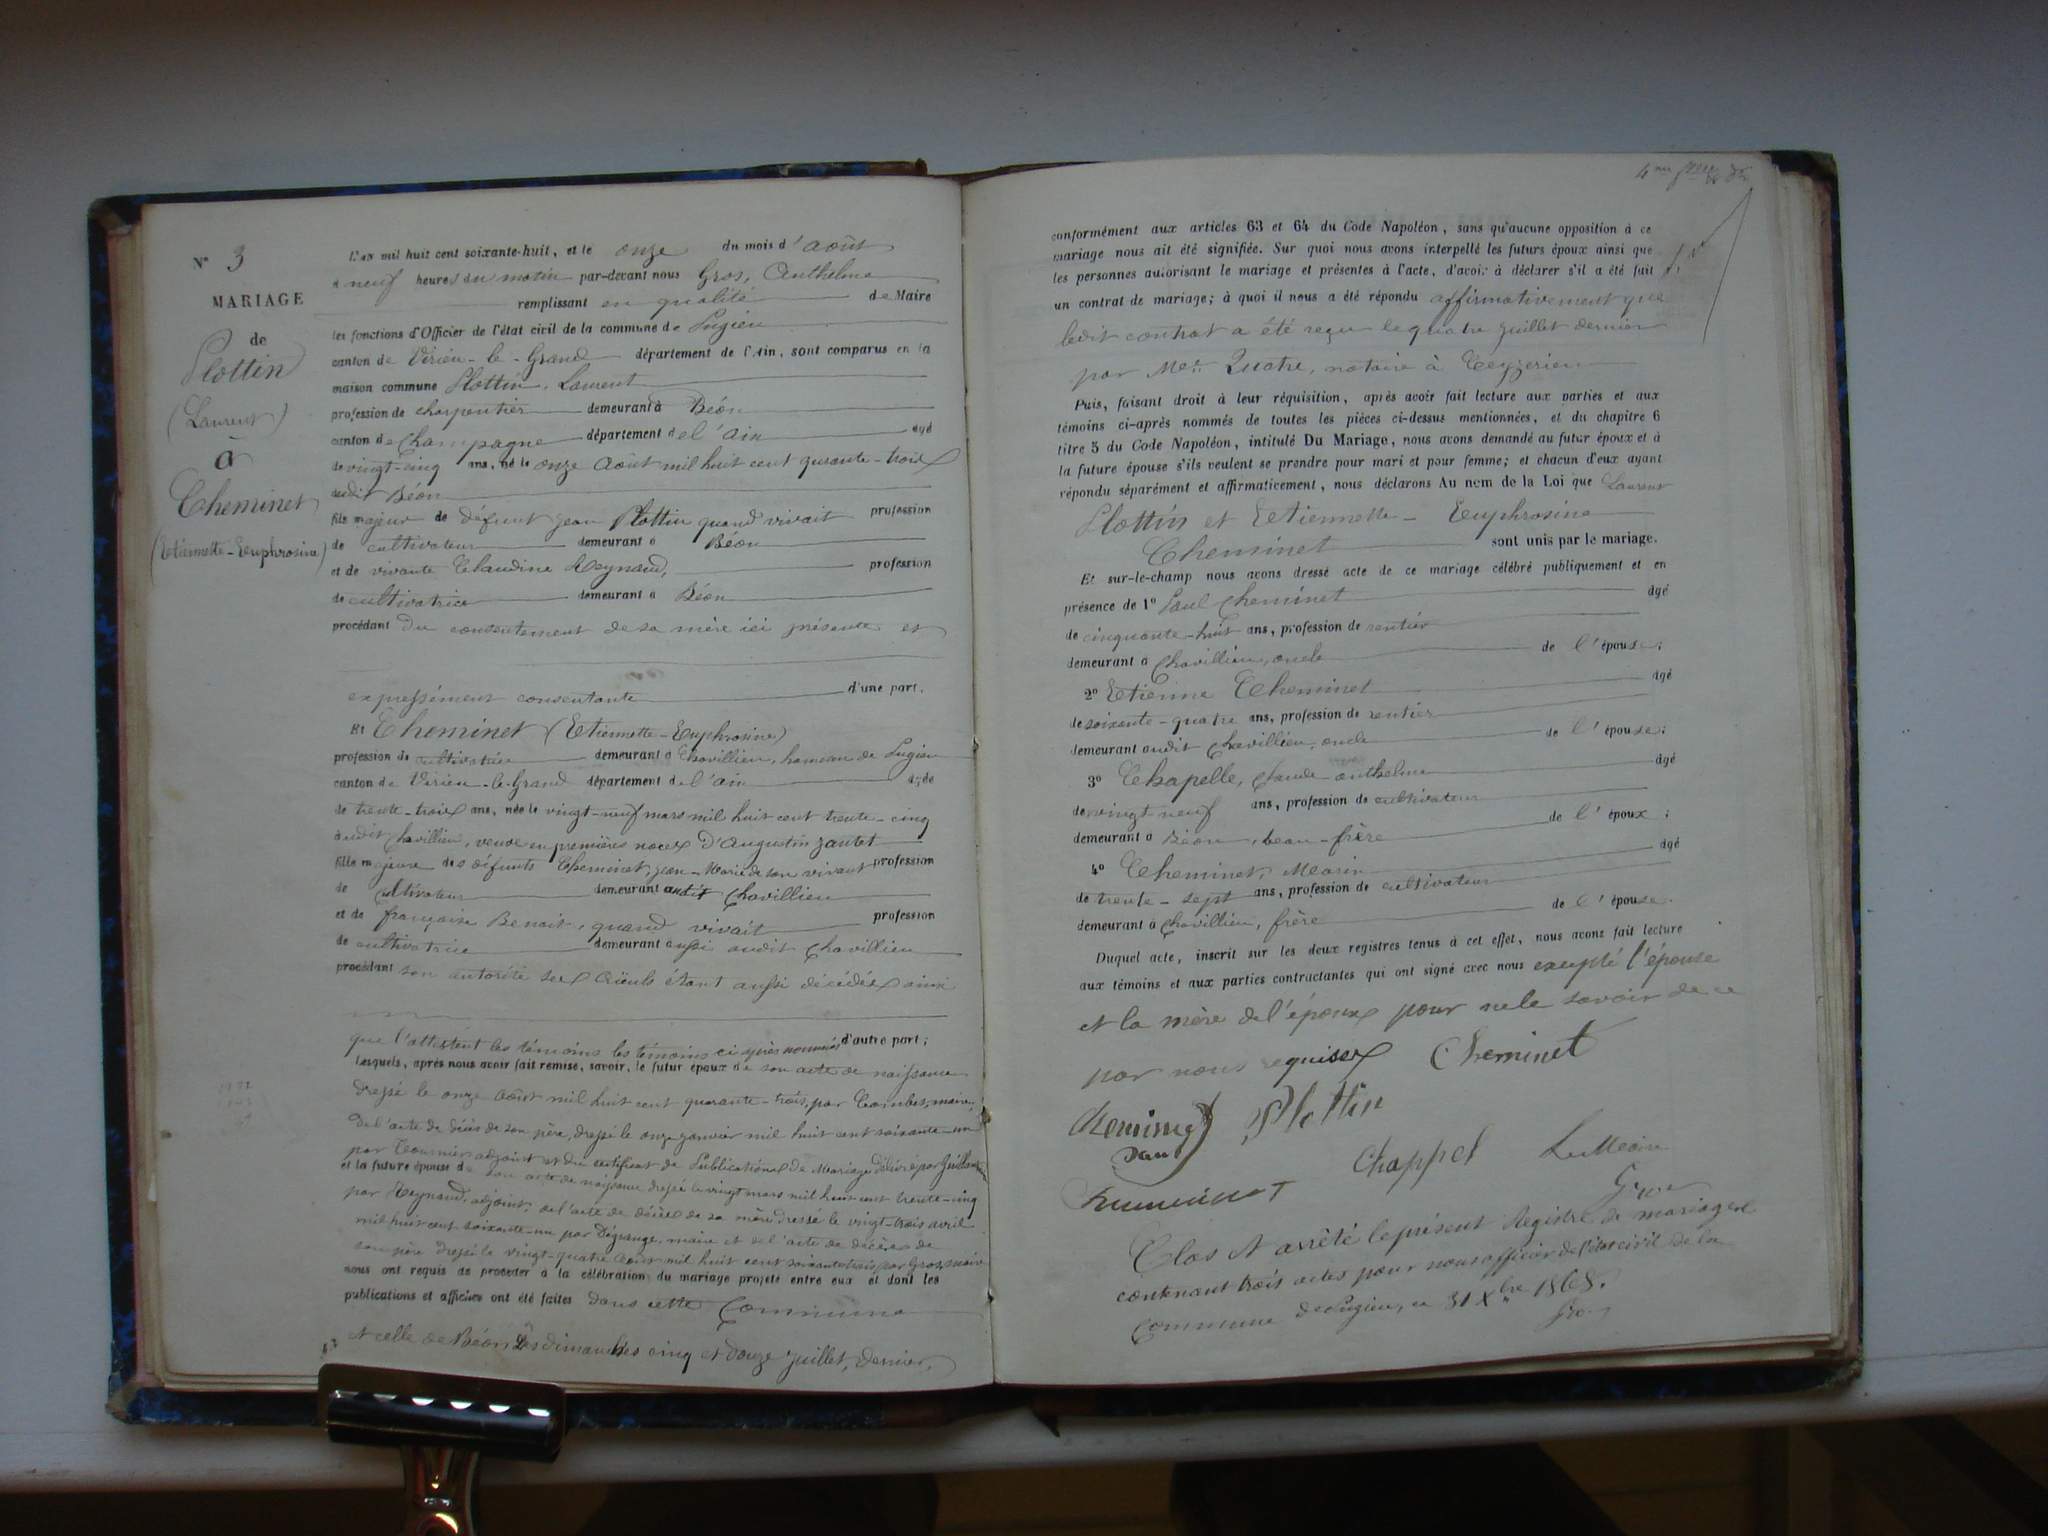 N° 3
MARIAGE
de
Plottin
(Laurent)
à
Cheminet
(Etiennette-Euphrosine)
L'an mil huit cent soixante-huit, et le onze du mois d'août
à neuf heures du matin par-devant nous Gros, Anthelme
remplissant en qualité de Maire
les fonctions d'Officier de l'état civil de la commune de Pugieu
canton de Virieu-le-Grand département de l'Ain, sont comparus en la
maison commune Plottin, Laurent
profession de charpentier demeurant à Béon
canton de Champagne département de l'ain âgé
de vingt-cinq ans, né le onze Août mil huit cent quarante-trois
audit Béon
fils majeur de défunt jean Plottin quand vivait profession
de cultivateur demeurant à Béon
et de vivante Claudine Reynaud, profession
de cultivatrice demeurant à Béon
procédant du consentement de sa mère ici présente et
expressément consentante d'une part.
Et Cheminet (Etiennette-Euphrosine)
profession de cultivatrice demeurant à Chavillieu, hameau de Pugieu
canton de Virieu-le-Grand département de l'ain âgée
de trente-trois ans, née le vingt-neuf mars mil huit cent trente-cinq
audit Chavillieu, veuve en premières noces D'Augustin Jantet
fille majeure des défunts Cheminet, jean-Marie de son vivant profession
de cultivateur demeurant audit Chavillieu
et de françoise Benoit, quand vivait profession
de cultivatrice demeurant aussi audit Chavillieu
procédant son autorité ses aïeuls étant aussi décédés ainsi
que l'attestent les témoins les témoins ci après nommés d'autre part;
Lesquels, après nous avoir fait remise, savoir, le futur époux de son acte de naissance
dressé le onze août mil huit cent quarante-trois, par Combes, maire,
de l'acte de décès de son père, dressé le onze janvier mil huit cent soixante-un
par Tournier adjoint et du certificat de Publications de Mariage délivré par
et la future épouse de son acte de naissance dressé le vingt mars mil huit cent trente-cinq
par Reynaud, adjoint, de l'acte de décès de sa mère dressé le vingt-trois avril
mil huit cent soixante-un par Dégrange, maire et de l'acte de décès de
son père dressé le vingt-quatre août mil huit cent soixante trois par Gros, maire
nous ont requis de procéder à la célébration du mariage projeté entre eux et dont les
publications et affiches ont été faites dans cette Commune
et celle de Béon les dimanches cinq et douze juillet, dernier,
conformément aux articles 63 et 64 du Code Napoléon, sans qu'aucune opposition à ce
mariage nous ait été signifiée. Sur quoi nous avons interpellé les futurs époux ainsi que
les personnes autorisant le mariage et présentes à l'acte, d'avoir à déclarer s'il a été fait
un contrat de mariage; à quoi il nous a été répondu affirmativement que
ledit contrat a été reçu le quatre juillet dernier
par Me Quatre, notaire à Ceyzerieu
Puis, faisant droit à leur réquisition, après avoir fait lecture aux parties et aux
témoins ci-après nommés de toutes les pièces ci-dessus mentionnées, et du chapitre 6
titre 5 du Code Napoléon, intitulé Du Mariage, nous avons demandé au futur époux et à
la future épouse s'ils veulent se prendre pour mari et pour femme; et chacun d'eux ayant
répondu séparément et affirmativement, nous déclarons Au nom de la Loi que Laurent
Plottin et Etiennette-Euphrosine
Cheminet sont unis par le mariage.
Et sur-le-champ nous avons dressé acte de ce mariage célébré publiquement et en
présence de 1° Paul Cheminet âgé
de cinquante-huit ans, profession de rentier
demeurant à Chavillieu, oncle de l'épouse;
2° Etienne Cheminet âgé
de soixante-quatre ans, profession de rentier
demeurant audit Chavillieu, oncle de l'épouse;
3° Chapelle, Claude-anthelme âgé
de vingt-neuf ans, profession de cultivateur
demeurant à Béon, beau-frère de l'époux;
4° Cheminet, Marin âgé
de trente-sept ans, profession de cultivateur
demeurant à Chavillieu, frère de l'épouse.
Duquel acte, inscrit sur les deux registres tenus à cet effet, nous avons fait lecture
aux témoins et aux parties contractantes qui ont signé avec nous excepté l'épouse
et la mère de l'époux pour ne le savoir de ce
par nous requises Cheminet
Cheminet Plottin
Chappel Le Maire
Cheminet Gros
Clos et arrêté le présent Registre de mariages
contenant trois actes pour nous officier de l'état civil de la
commune de Pugieu, ce 31 Xbre 1868.
Gros